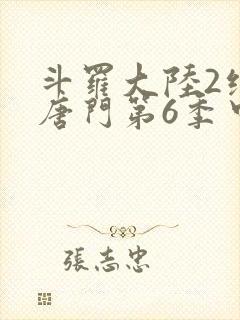 斗羅大陸2
唐門第6季
張志忠